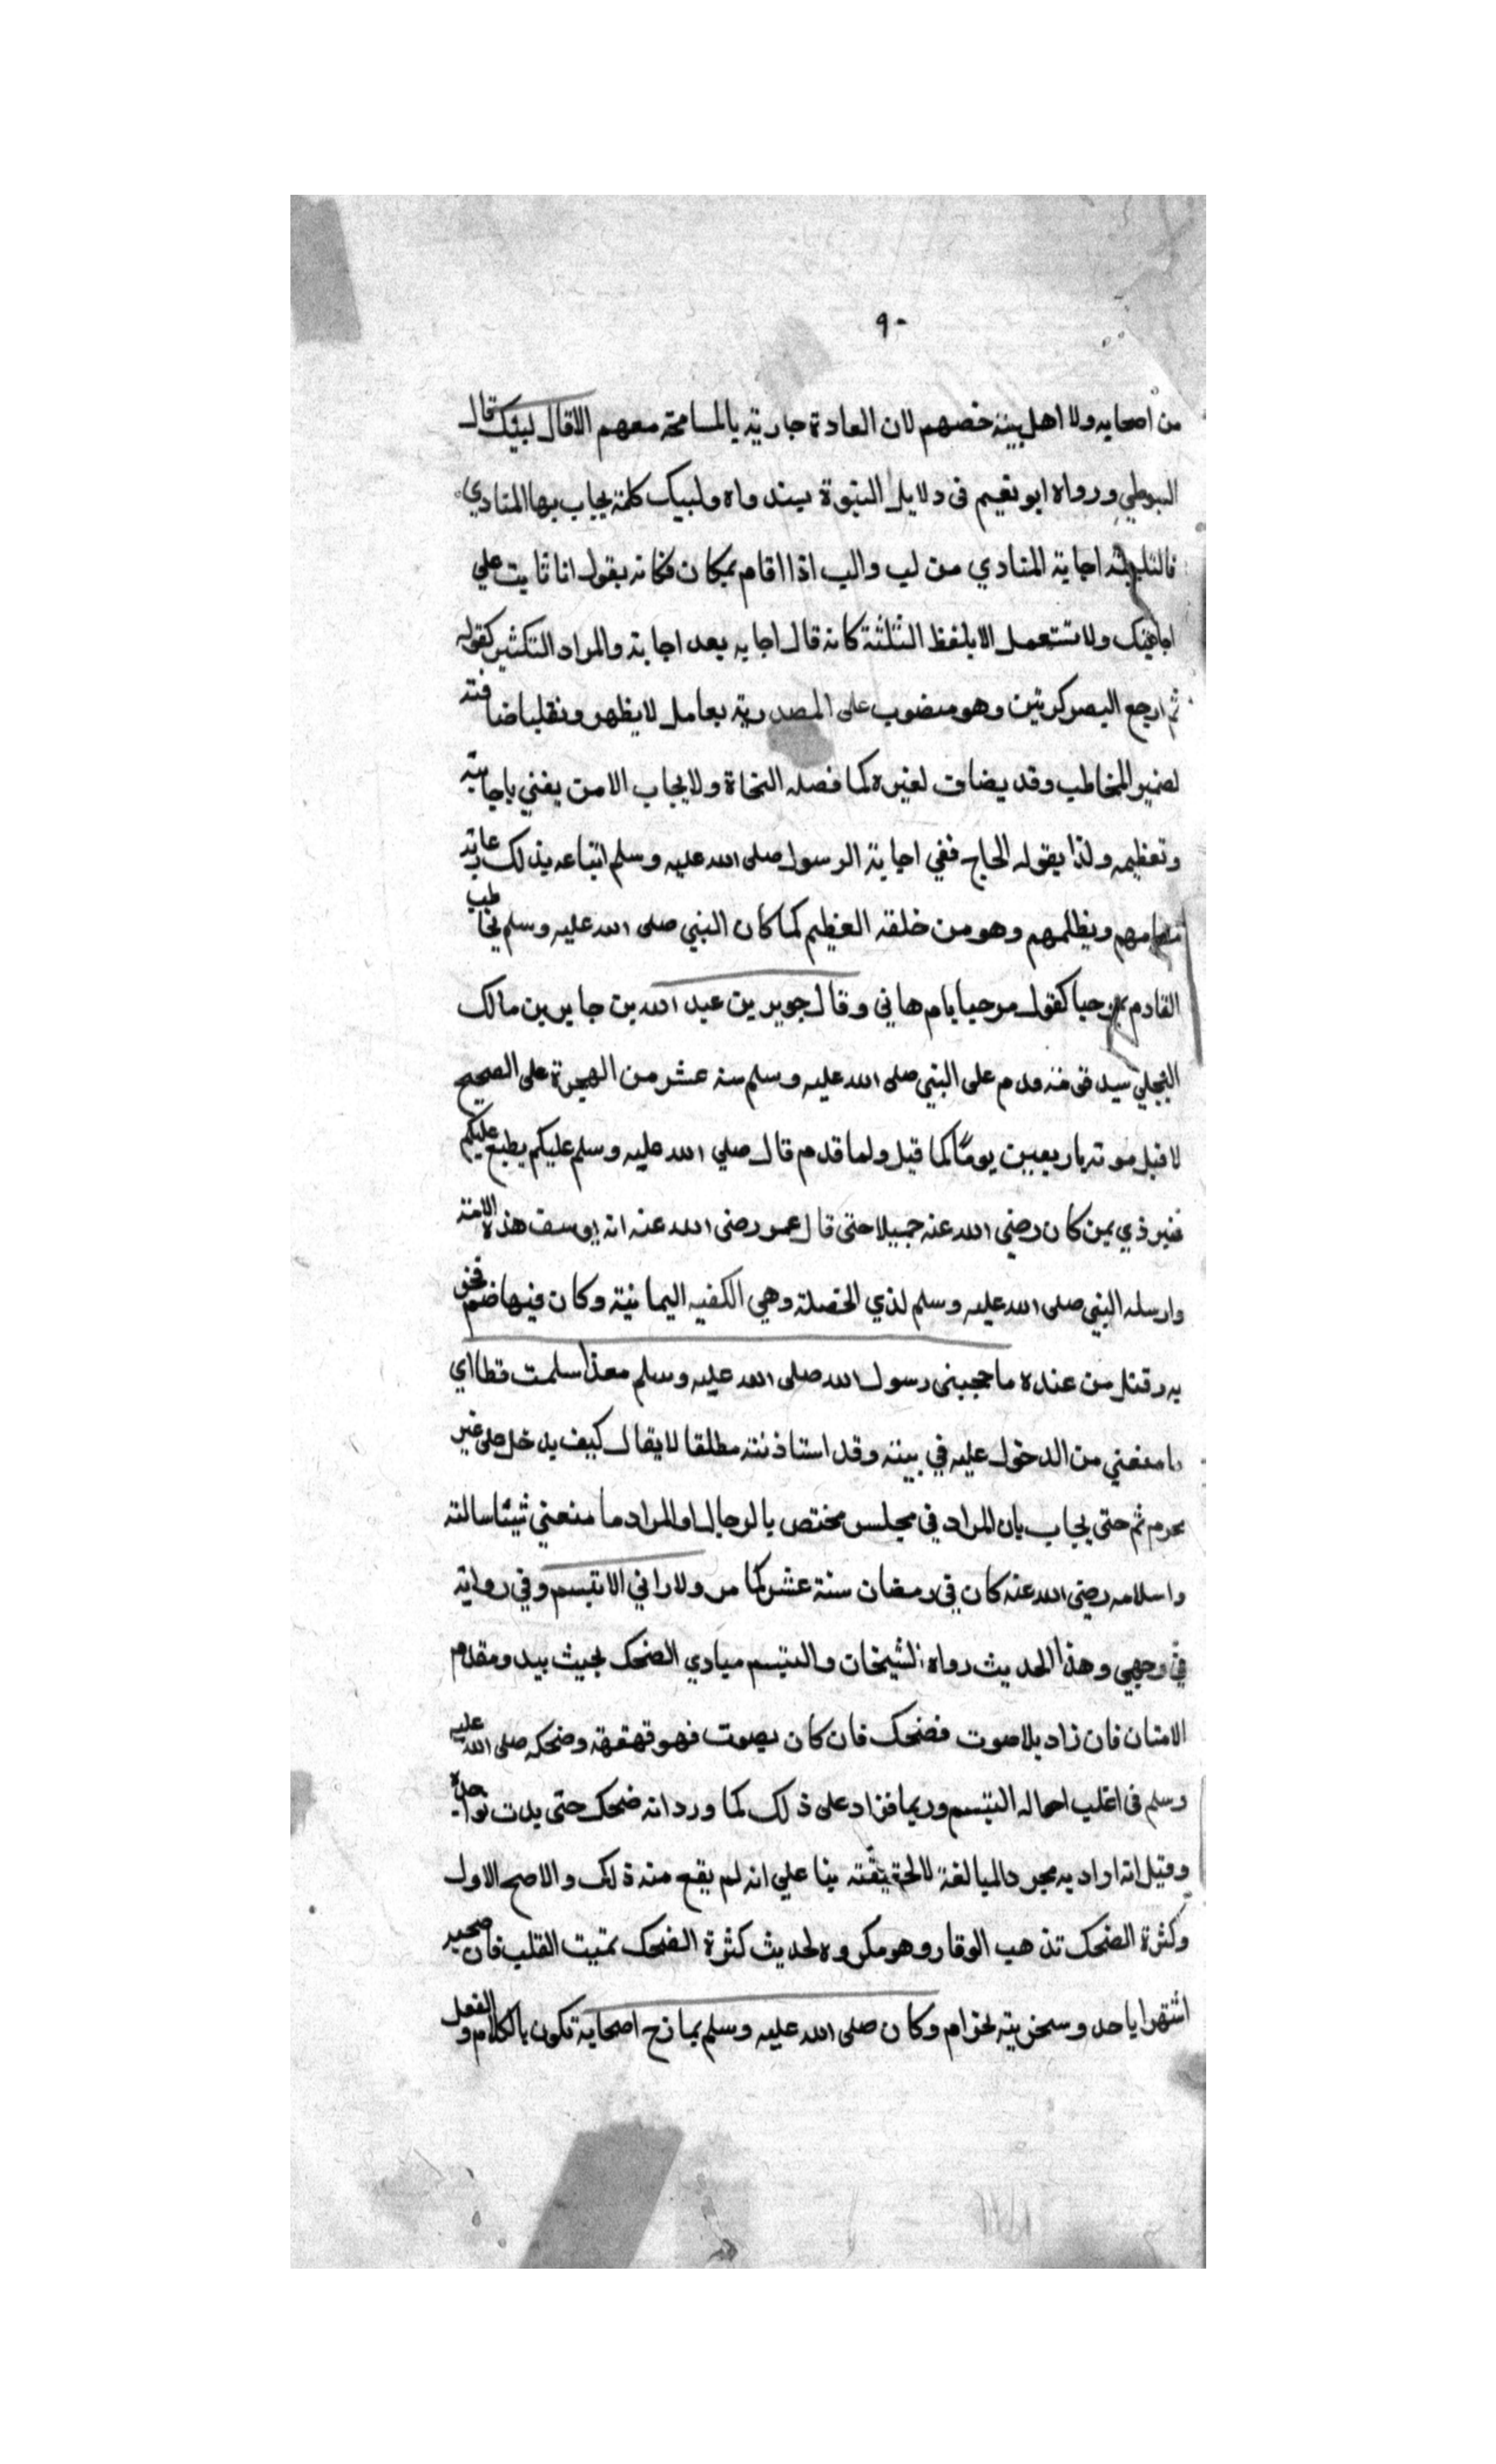 ٩٠
من اصحابه ولا اهل بيته خصهم لان العادة جارية بالمسامحة معهم الا قال لبيك قال
السيوطي ورواه ابو نعيم في دلايل النبوة بسند واه ولبيك كلمة يجاب بها المنادي
فالتلبية اجابة المنادي من لب والب اذا اقام بمكان فكانه يقول انا ثابت علي
اجابتك ولا تستعمل الا بلفظ التثنية كانه قال اجابه بعد اجابة والمراد التكثير كقوله
ثم ارجع البصر كرتين وهو منصوب على المصدرية بعامل لا يظهر ونقلب اضافته
لضمير المخاطب وقد يضاف لغيره كما فصله النحاة ولا يجاب الا من يعني باجابته
وتعظيمه ولذا يقوله الحاج ففي اجابة الرسول صلى الله عليه وسلم اتباعه بذلك غاية
ويظلمهم وهو من خلقه العظيم كما كان النبي صلى الله عليه وسلم يخاطب
القادم بمرحبا كقوله مرحبا بام هاني وقال جرير بن عبد الله بن جابر بن مالك
البجلي سيد قدم على النبي صلى الله عليه وسلم سنة عشر من الهجرة على الصحيح
لا قبل موته باربعين يوما كما قيل ولما قدم قال صلي الله عليه وسلم عليكم يطلع عليكم
خير ذي يمن كان رضي الله عنه جميلا حتى قال عمر رضى الله عنه انه يوسف هذه الامة
وارسله النبي صلى الله عليه وسلم لذي الخصلة وهي الكعبة اليمانية وكان فيها صنم فحرق
به وقتل من عنده ما حجبني رسول الله صلى الله عليه وسلم منذ اسلمت قط اي
ما منعني من الدخول عليه في بيته وقد استاذنته مطلقا لا يقال كيف يدخل على غير
محرم ثم حتى يجاب بان المراد في مجلس مختص بالرجال او المراد ما منعني شيئا سالته
واسلامه رضي الله عنه كان في رمضان سنة عشر كما مر ولا راني الا تبسم وفي رواية
في وجهي وهذا الحديث رواه الشيخان والتبسم مبادي الضحك بحيث يبدو مقدم
الاسنان فان زاد بلا صوت فضحك فان كان بصوت فهو قهقهة وضحكه صلى الله عليه
وسلم في اغلب احواله التبسم وربما فزاد على ذلك كما ورد انه ضحك حتى بدت نواجذه
وقيل انه اراد به مجرد المبالغة لا الحقيقة بنا علي انه لم يقع منه ذلك والاصح الاول
وكثرة الضحك تذهب الوقار وهو مكروه لحديث كثرة الضحك تميت القلب فان
باحد وسخرية لحرام وكان صلى الله عليه وسلم يمازح اصحابه تكون بالكلام والفعل